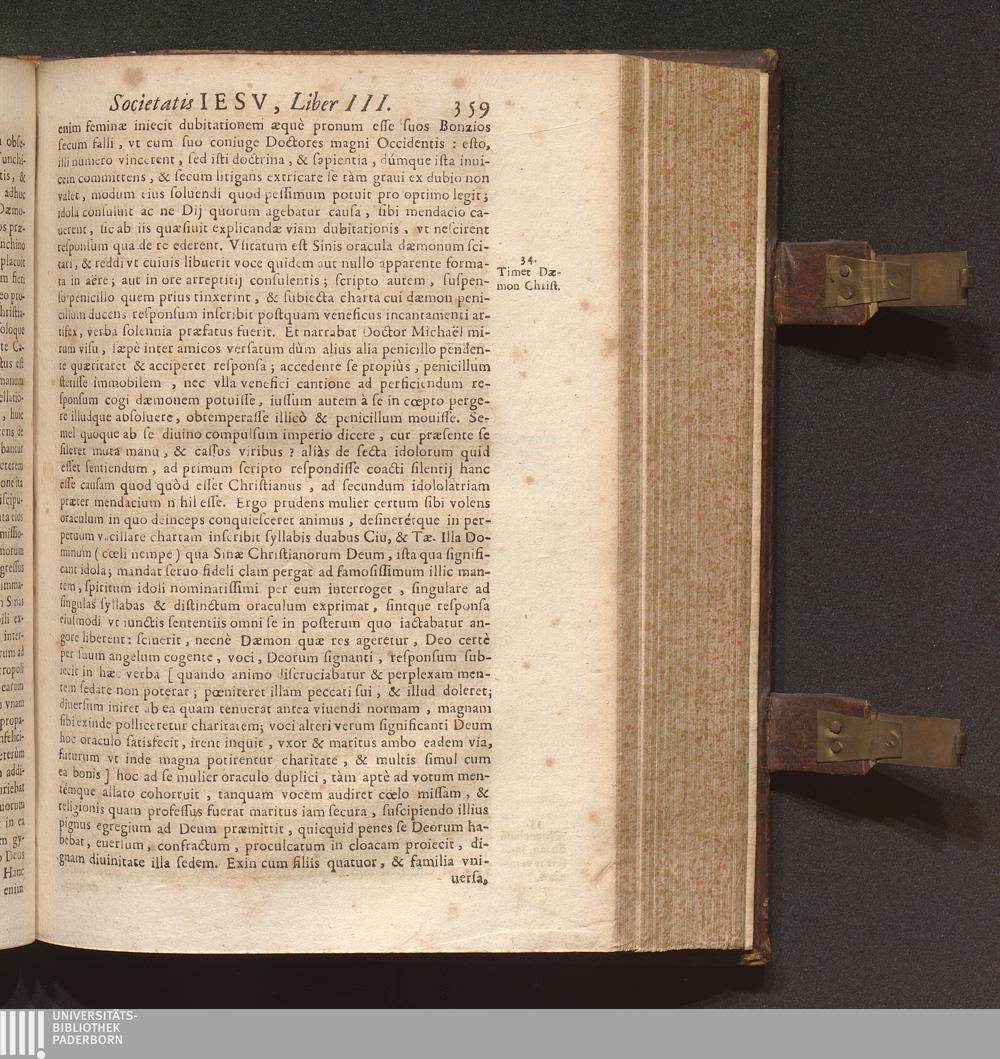 Societatis IESV, Liber III. 359
enim feminæ iniecit dubitationem æquè pronum esse suos Bonzios
secum falli, vt cum suo coniuge Doctores magni Occidentis: esto,
illi numero vincerent, sed isti doctrina, & sapientia, dúmque ista inui-
cem committens, & secum litigans extricare se tàm graui ex dubio non
valet, modum eius soluendi quod pessimum potuit pro optimo legit;
idola consuluit ac ne Dij quorum agebatur causa, sibi mendacio ca-
uerent, sic ab iis quæsiuit explicandæ viam dubitationis, vt nescirent
responsum qua de re ederent. Vsitatum est Sinis oracula dæmonum sci-
tari, & reddi vt cuiuis libuerit voce quidem aut nullo apparente forma-
ta in aëre; aut in ore arreptitij consulentis; scripto autem, suspen-
so penicillo quem prius tinxerint, & subiecta charta cui dæmon peni-
cillum ducens responsum inscribit postquam veneficus incantamenti ar-
tifex, verba solennia præfatus fuerit. Et narrabat Doctor Michaël mi-
rum visu, sæpè inter amicos versatum dùm alius alia penicillo penden-
te quæritaret & acciperet responsa; accedente se propiùs, penicillum
stetisse immobilem, nec vlla venefici cantione ad perficiendum re-
sponsum cogi dæmonem potuisse, iussum autem à se in cœpto perge-
re illudque absoluere, obtemperasse illicò & penicillum mouisse. Se-
mel quoque ab se diuino compulsum imperio dicere, cur præsente se
sileret muta manu, & cassus viribus? aliàs de secta idolorum quid
esset sentiendum, ad primum scripto respondisse coacti silentij hanc
esse causam quod quòd esset Christianus, ad secundum idololatriam
præter mendacium nihil esse. Ergo prudens mulier certum sibi volens
oraculum in quo deinceps conquiesceret animus, desinerétque in per-
petuum vacillare chartam inscribit syllabis duabus Ciu, & Tæ. Illa Do-
minum (cœli nempe) qua Sinæ Christianorum Deum, ista qua signifi-
cant idola; mandat seruo fideli clam pergat ad famosissimum illic man-
tem, spiritum idoli nominatissimi per eum interroget, singulare ad
singulas syllabas & distinctum oraculum exprimat, sintque responsa
eiusmodi vt iunctis sententiis omni se in posterum quo iactabatur an-
gore liberent: sciuerit, necnè Dæmon quæ res ageretur, Deo certè
per suum angelum cogente, voci, Deorum signanti, responsum sub-
iecit in hæc verba [quando animo discruciabatur & perplexam men-
tem sedare non poterat; pœniteret illam peccati sui, & illud doleret;
diuersum iniret ab ea quam tenuerat antea viuendi normam, magnam
sibi exinde polliceretur charitatem; voci alteri verum significanti Deum
hoc oraculo satisfecit, irent inquit, vxor & maritus ambo eadem via,
futurum vt inde magna potirentur charitate, & multis simul cum
ea bonis] hoc ad se mulier oraculo duplici, tàm aptè ad votum men-
témque allato cohorruit, tanquam vocem audiret cœlo missam, &
religionis quam professus fuerat maritus iam secura, suscipiendo illius
pignus egregium ad Deum præmittit, quicquid penes se Deorum ha-
bebat, euersum, confractum, proculcatum in cloacam proiecit, di-
gnam diuinitate illa sedem. Exin cum filiis quatuor, & familia vni-
uersa,
34.
Timet Dæ-
mon Christ.
UNIVERSITÄTS-
BIBLIOTHEK
PADERBORN